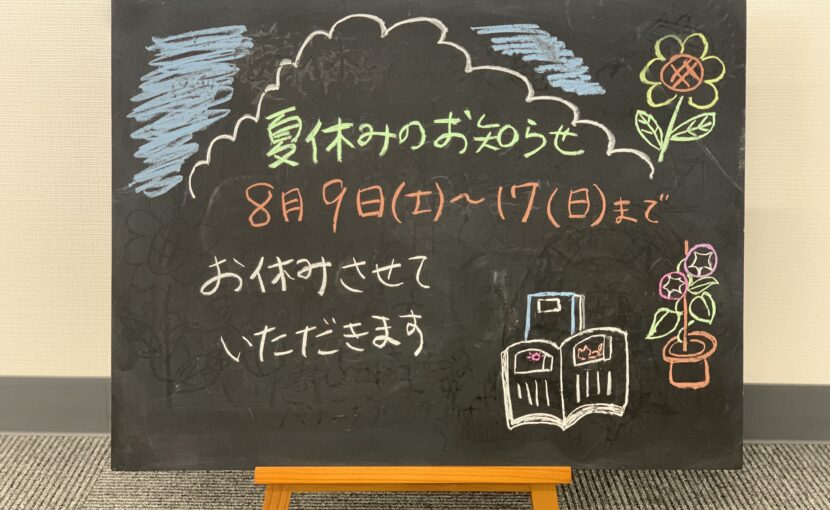 夏休みのお知らせ
8月9日(土)～17(日)まで
お休みさせて
いただきます